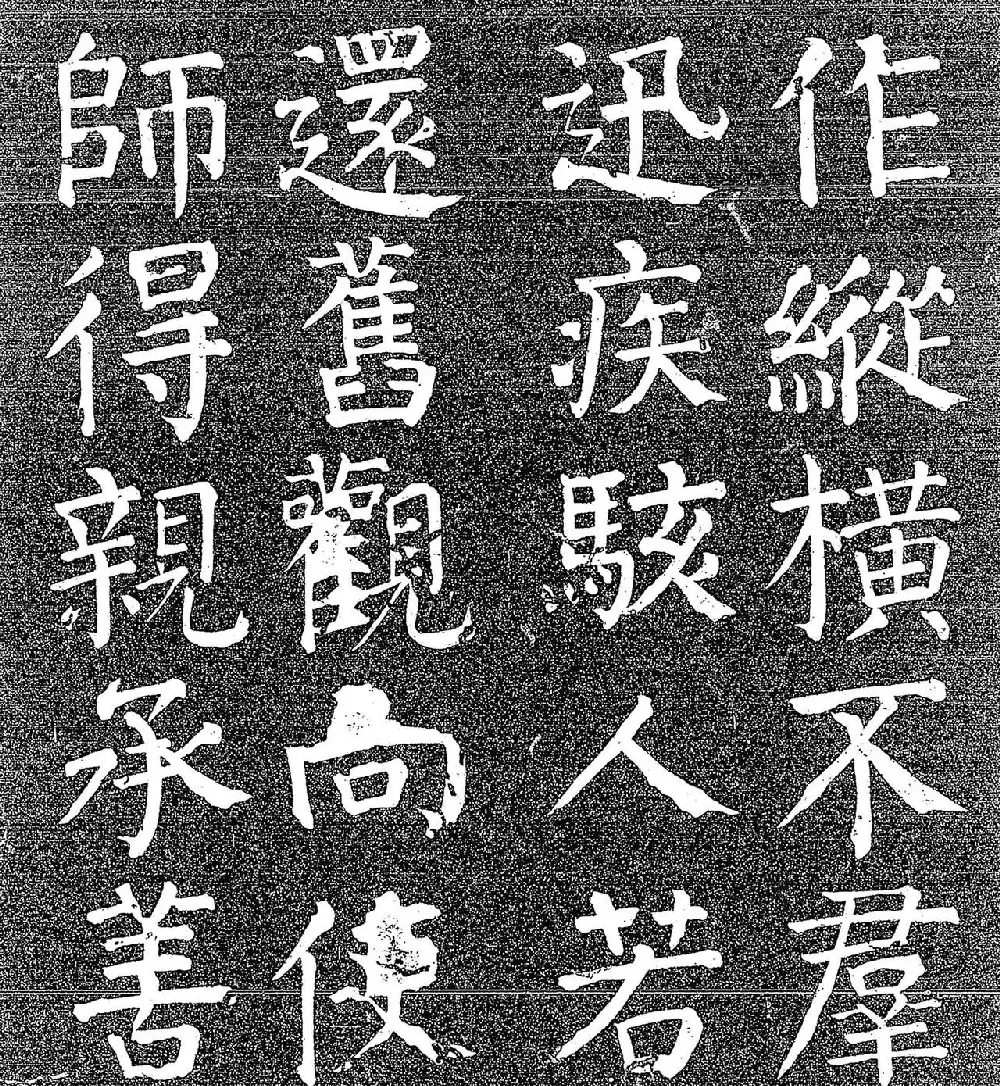 作縱橫不羣
迅疾駭人若
還舊觀向使
師得親承善